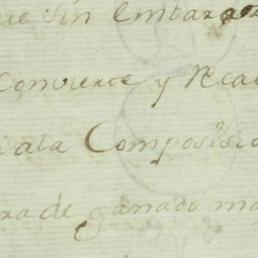 ue Sin embargo
Conviene y Rca
ala Composisi
ra de ganado ma